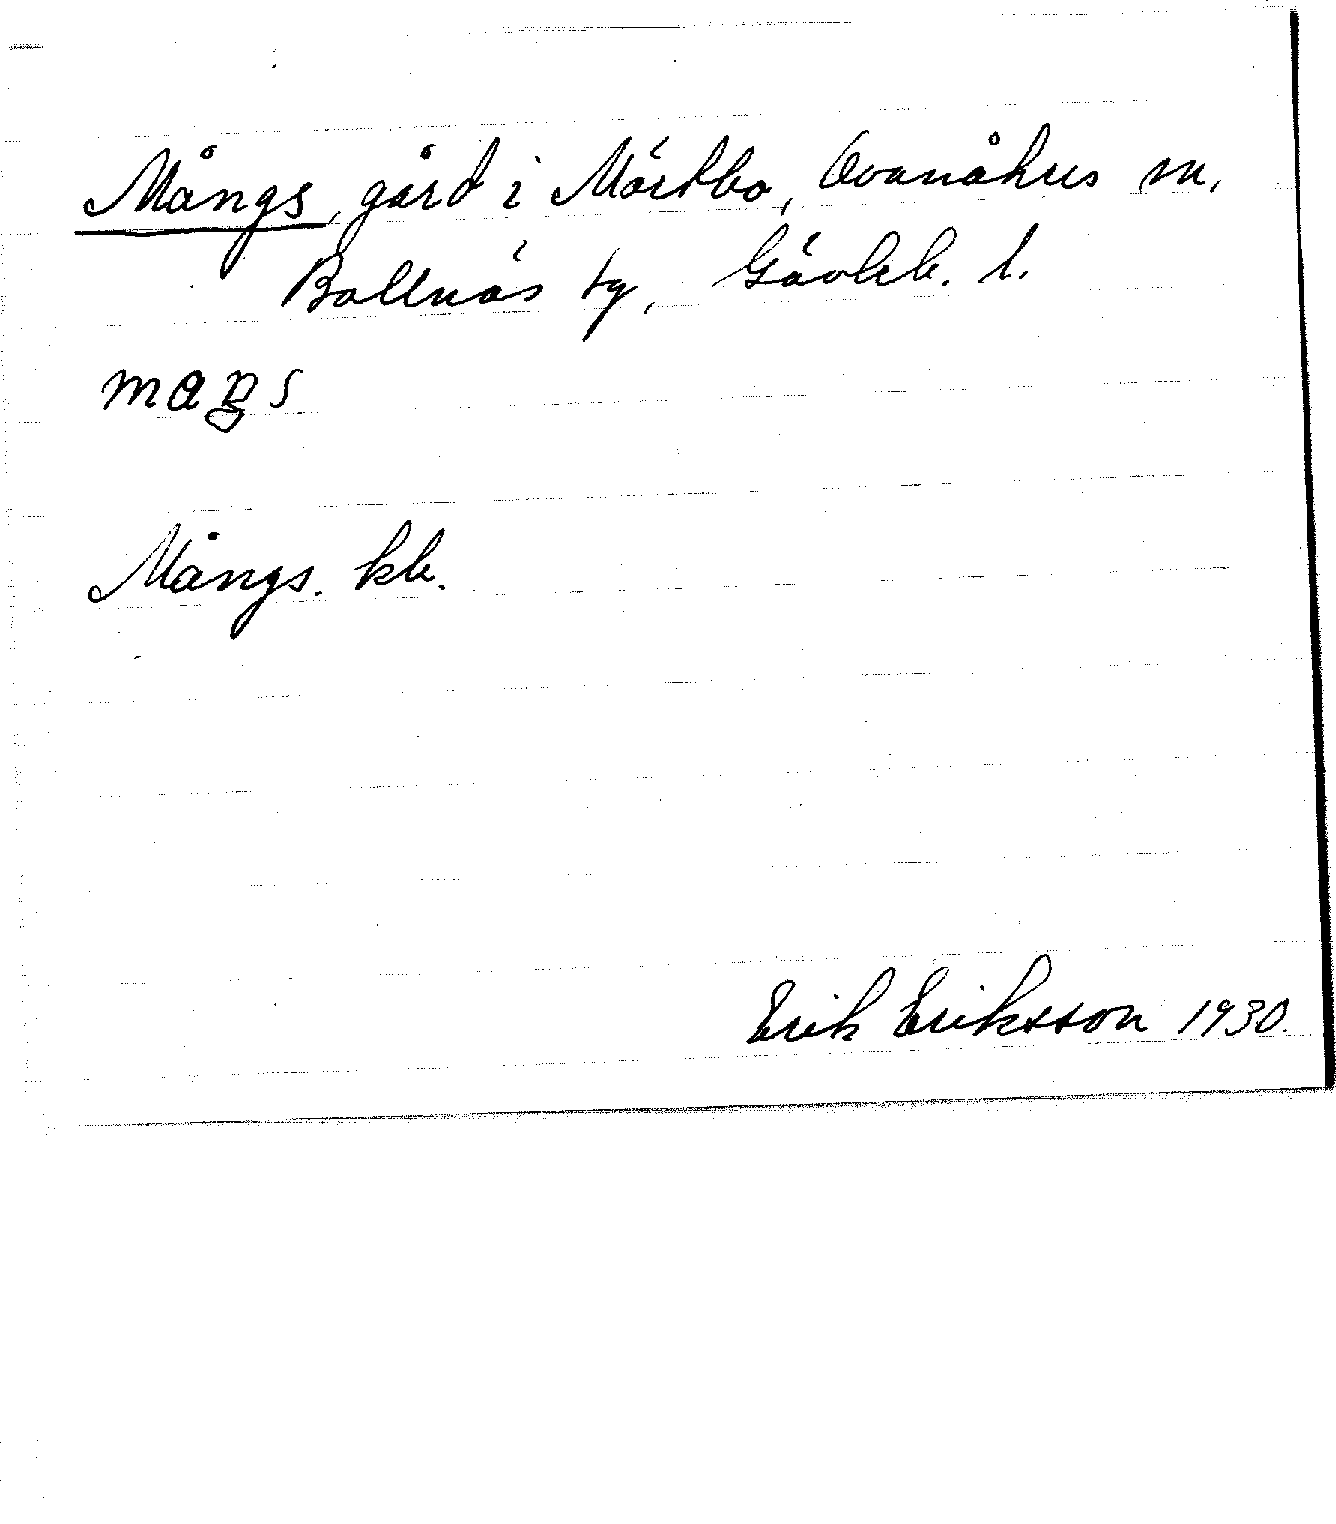 Mångs, gård i Mörtbo, Ovanåkers sn,
Bollnäs tg, Gävleb. l.
Mångs. kb.
Erik Eriksson 1930.